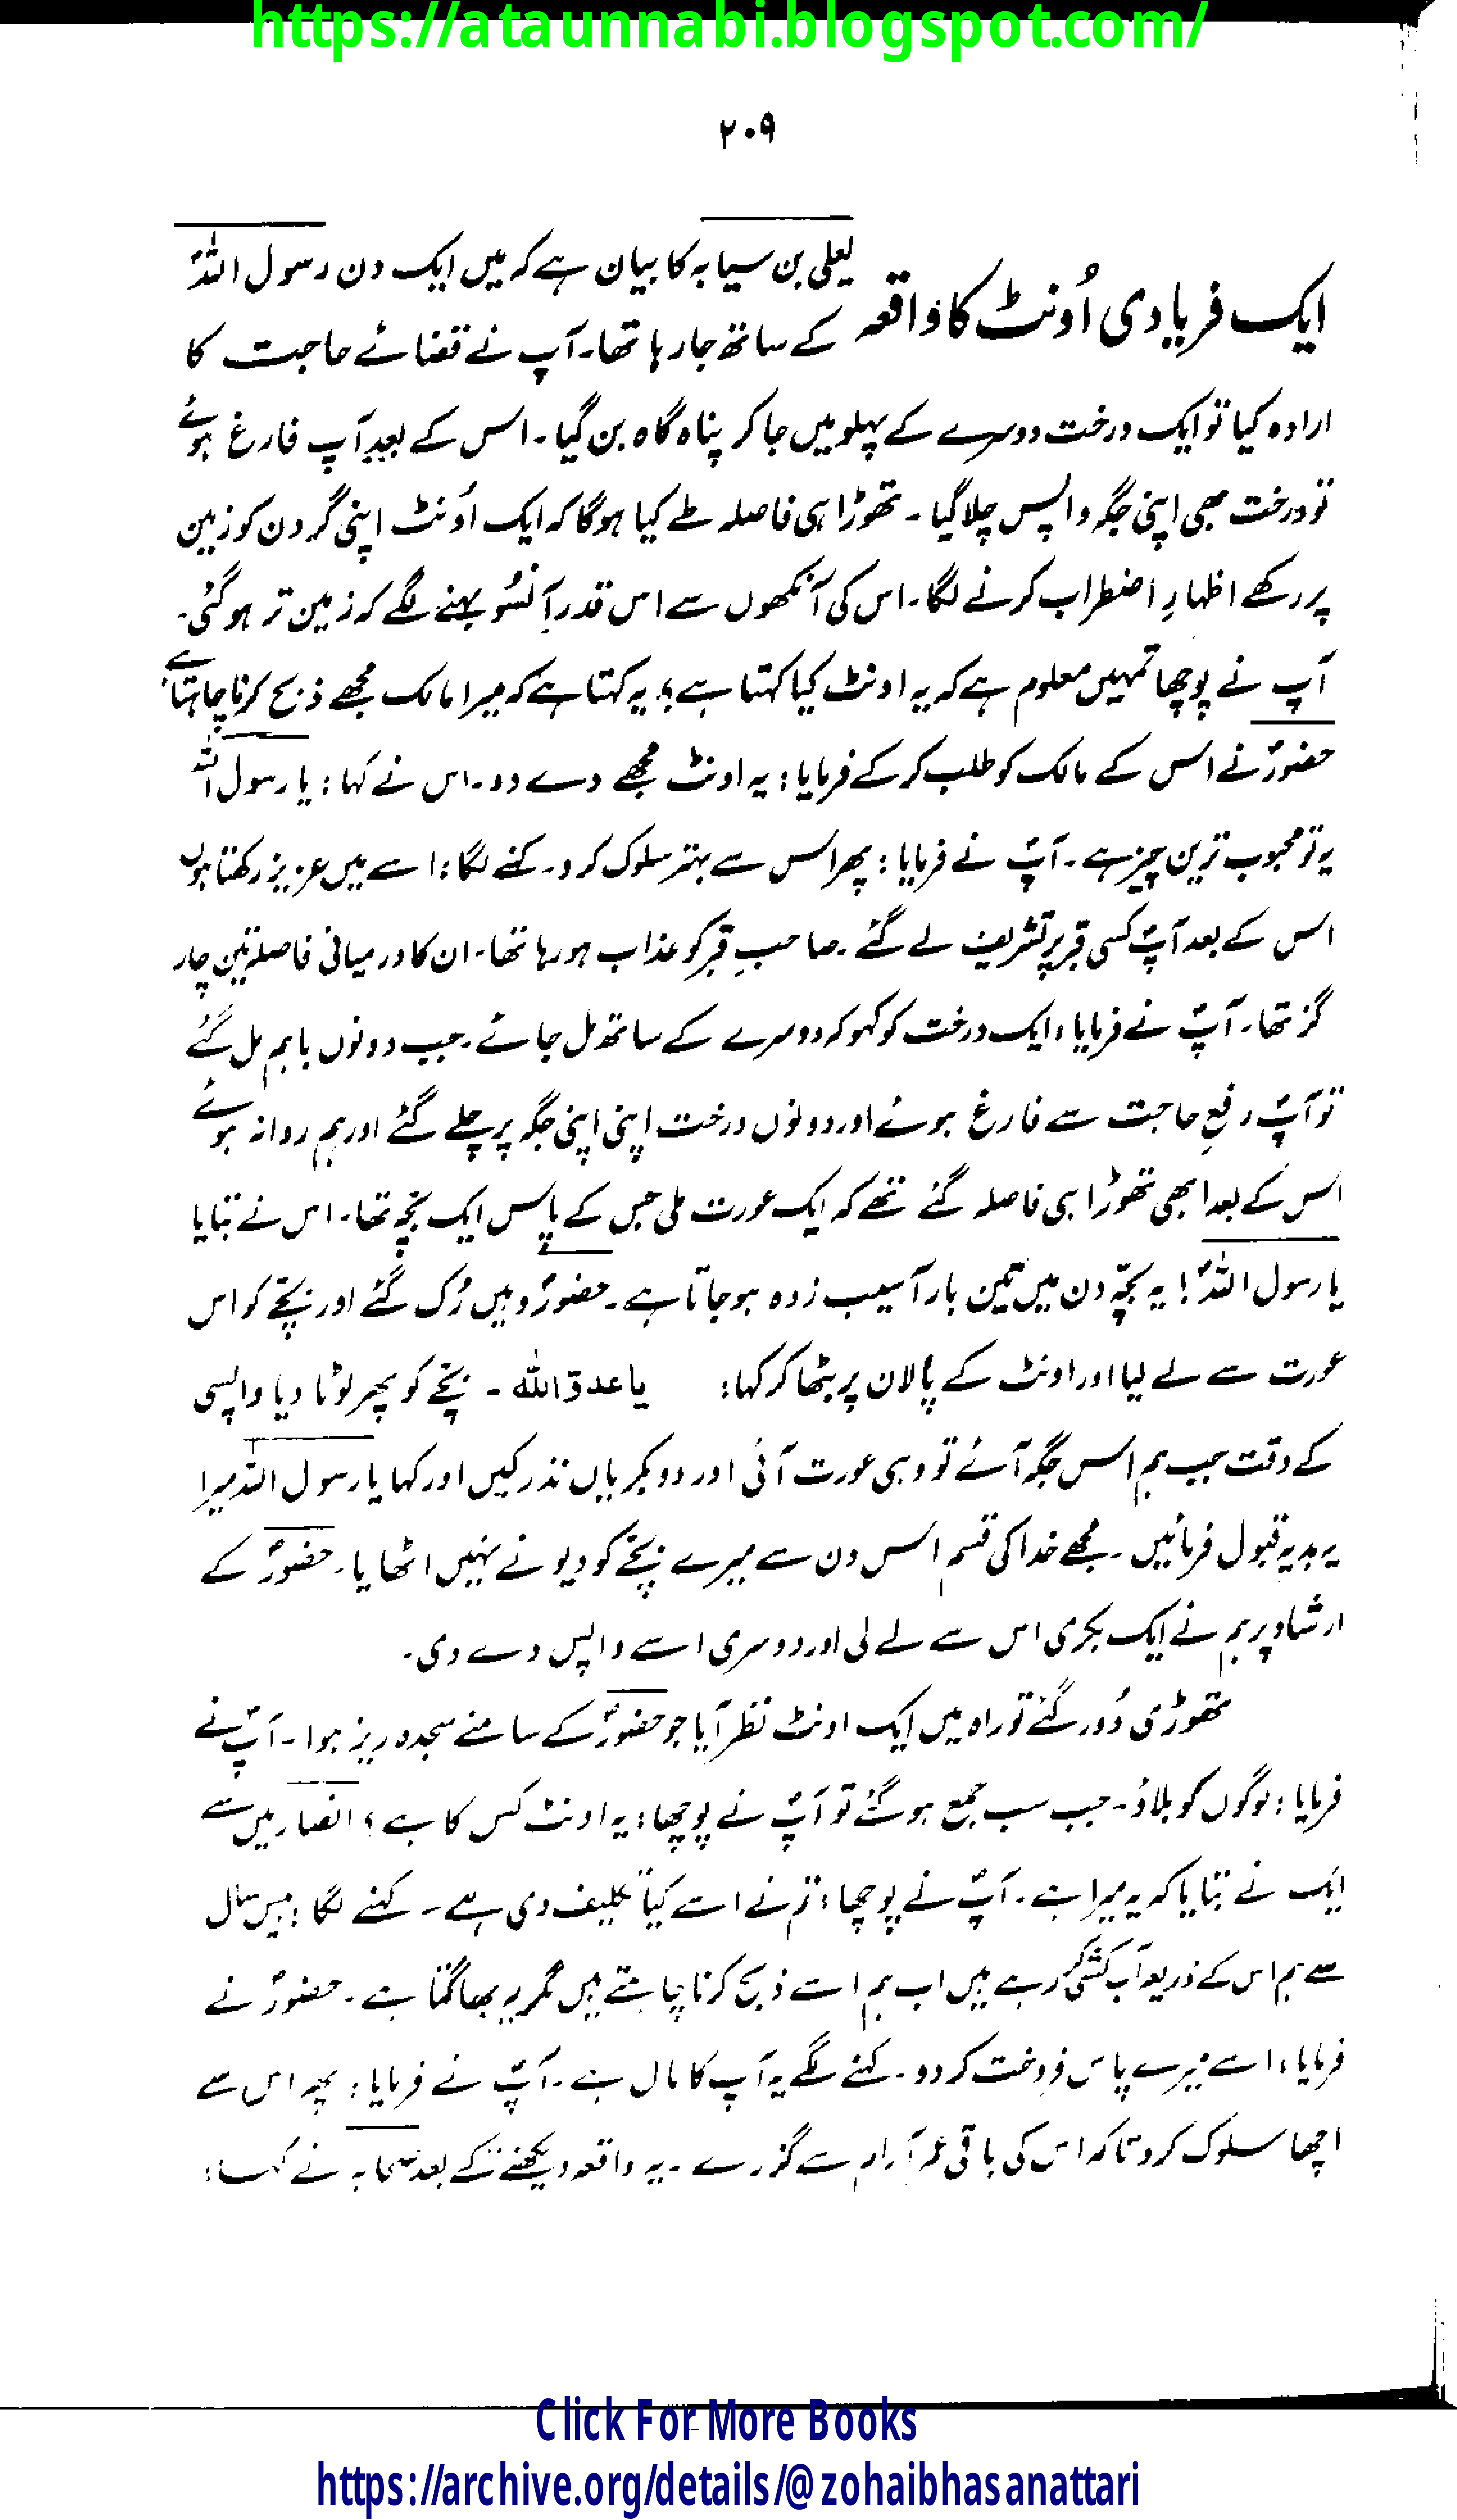 https://ataunnabi.blogspot.com/
۲۰۹
ایک فریادی اُونٹ کا واقعہ
یعلی بن سیابہ کا بیان ہے کہ میں ایک دن رسول اللہؐ
کے ساتھ جا رہا تھا۔ آپ نے قضائے حاجت کا
ارادہ کیا تو ایک درخت دوسرے کے پہلو میں جا کر پناہ گاہ بن گیا۔ اس کے بعد آپ فارغ ہوئے
تو درخت بھی اپنی جگہ واپس چلا گیا۔ تھوڑا ہی فاصلہ طے کیا ہوگا کہ ایک اُونٹ اپنی گردن کو زمین
پر رکھے اظہارِ اضطراب کرنے لگا۔ اس کی آنکھوں سے اس قدر آنسُو بہنے لگے کہ زمین تر ہو گئی۔
آپ نے پوچھا تمہیں معلوم ہے کہ یہ اونٹ کیا کہتا ہے؟ یہ کہتا ہے کہ میرا مالک مجھے ذبح کرنا چاہتا ہے
حضورؐ نے اس کے مالک کو طلب کر کے فرمایا: یہ اونٹ مجھے دے دو۔ اس نے کہا: یا رسول اللہ
یہ تو محبوب ترین چیز ہے۔ آپؐ نے فرمایا: پھر اس سے بہتر سلوک کرو۔ کہنے لگا: اسے میں عزیز رکھتا ہوں
اس کے بعد آپؐ کسی قبر پر تشریف لے گئے۔ صاحبِ قبر کو عذاب ہو رہا تھا۔ ان کا درمیانی فاصلہ تین چار
گز تھا۔ آپؐ نے فرمایا، ایک درخت کو کہو کہ دوسرے کے ساتھ مل جائے۔ جب دونوں باہم مل گئے
تو آپؐ رفعِ حاجت سے فارغ ہوئے اور دونوں درخت اپنی اپنی جگہ پر چلے گئے اور ہم روانہ ہوئے
اس کے بعد ابھی تھوڑا ہی فاصلہ گئے تھے کہ ایک عورت ملی جس کے پاس ایک بچّہ تھا۔ اس نے بتایا
یا رسول اللہؐ! یہ بچّہ دن میں تین بار آسیب زدہ ہو جاتا ہے۔ حضورؐ وہیں رُک گئے اور بچّے کو اس
عورت سے لے لیا اور اونٹ کے پالان پر بٹھا کر کہا: یا عدوّ اللہ ۔ بچّے کو پھر لوٹا دیا واپسی
کے وقت جب ہم اس جگہ آئے تو وہی عورت آئی اور دو بکریاں نذر کیں اور کہا یا رسول اللہ میرا
یہ ہدیہ قبول فرمائیں۔ مجھے خدا کی قسم اس دن سے میرے بچّے کو دیو نے نہیں اٹھایا۔ حضورؐ کے
ارشاد پر ہم نے ایک بکری اس سے لے لی اور دوسری اسے واپس دے دی۔
تھوڑی دُور گئے تو راہ میں ایک اونٹ نظر آیا جو حضورؐ کے سامنے سجدہ ریز ہوا۔ آپؐ نے
فرمایا: لوگوں کو بلاؤ۔ جب سب جمع ہو گئے تو آپؐ نے پوچھا: یہ اونٹ کس کا ہے؟ انصار میں سے
ایک نے بتایا کہ یہ میرا ہے۔ آپؐ نے پوچھا، تم نے اسے کیا تکلیف دی ہے۔ کہنے لگا: بیس سال
سے ہم اس کے ذریعہ آب کشی کر رہے ہیں اب ہم اسے ذبح کرنا چاہتے ہیں مگر یہ بھاگتا ہے۔ حضورؐ نے
فرمایا، اسے میرے پاس فروخت کر دو۔ کہنے لگے یہ آپ کا مال ہے۔ آپؐ نے فرمایا: پھر اس سے
اچھا سلوک کرو تاکہ اس کی باقی عمر آرام سے گزرے۔ یہ واقعہ دیکھنے کے بعد صحابہ نے کہا:
Click For More Books
https://archive.org/details/@zohaibhasanattari